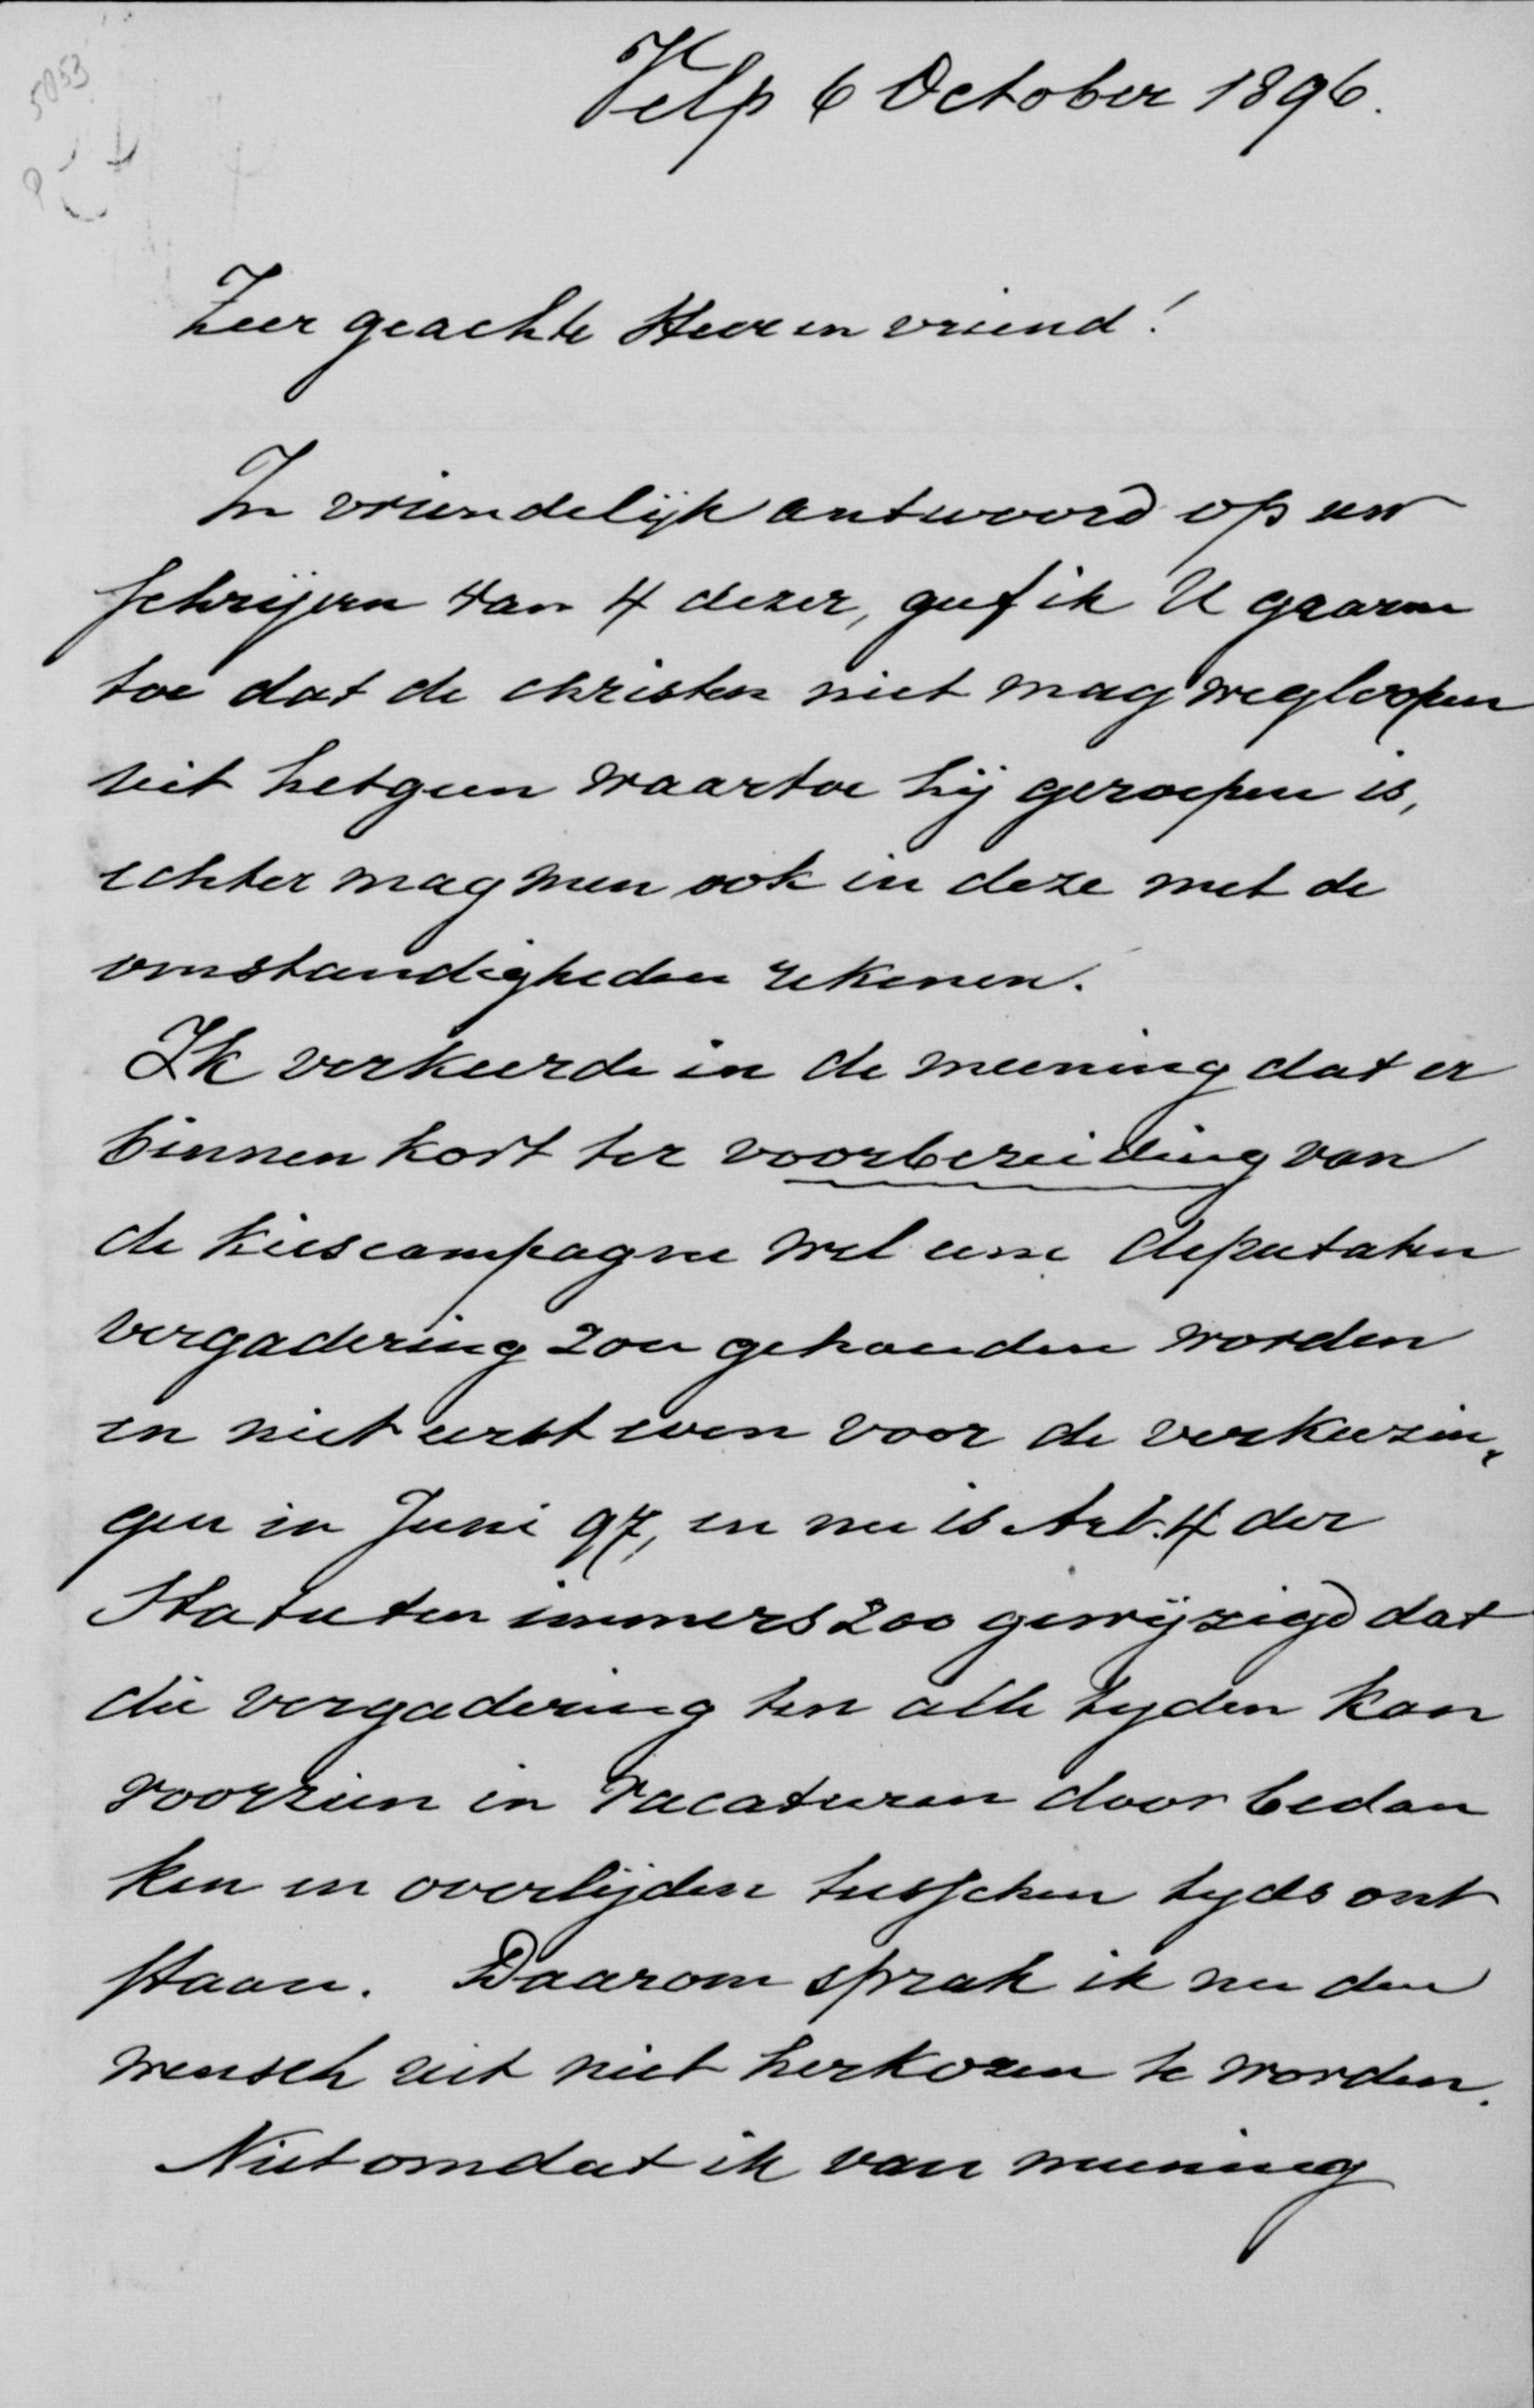 5053
Velp 6 October 1896.
Zeer geachte Heer en vriend!
In vriendelijk antwoord op uw
schrijven van 4 dezer, geef ik U gaarne
toe dat de christen niet mag wegloopen
uit hetgeen waartoe hij geroepen is,
echter mag men ook in deze met de
omstandigheden rekenen.
Ik verkeerde in de meening dat er
binnen kort ter voorbereiding van
de kiescampagne wel eene deputaten
vergadering zou gehouden worden
en niet eerst even voor de verkiezin„
gen in Juni 97, en nu is Art. 4 der
Statuten immers zoo gewijzigd dat
die vergadering ten alle tyden kan
voorzien in vacaturen door bedan
ken en overlijden tusschen tyds ont
staan. Daarom sprak ik nu den
wensch uit niet herkozen te worden.
Niet omdat ik van meening